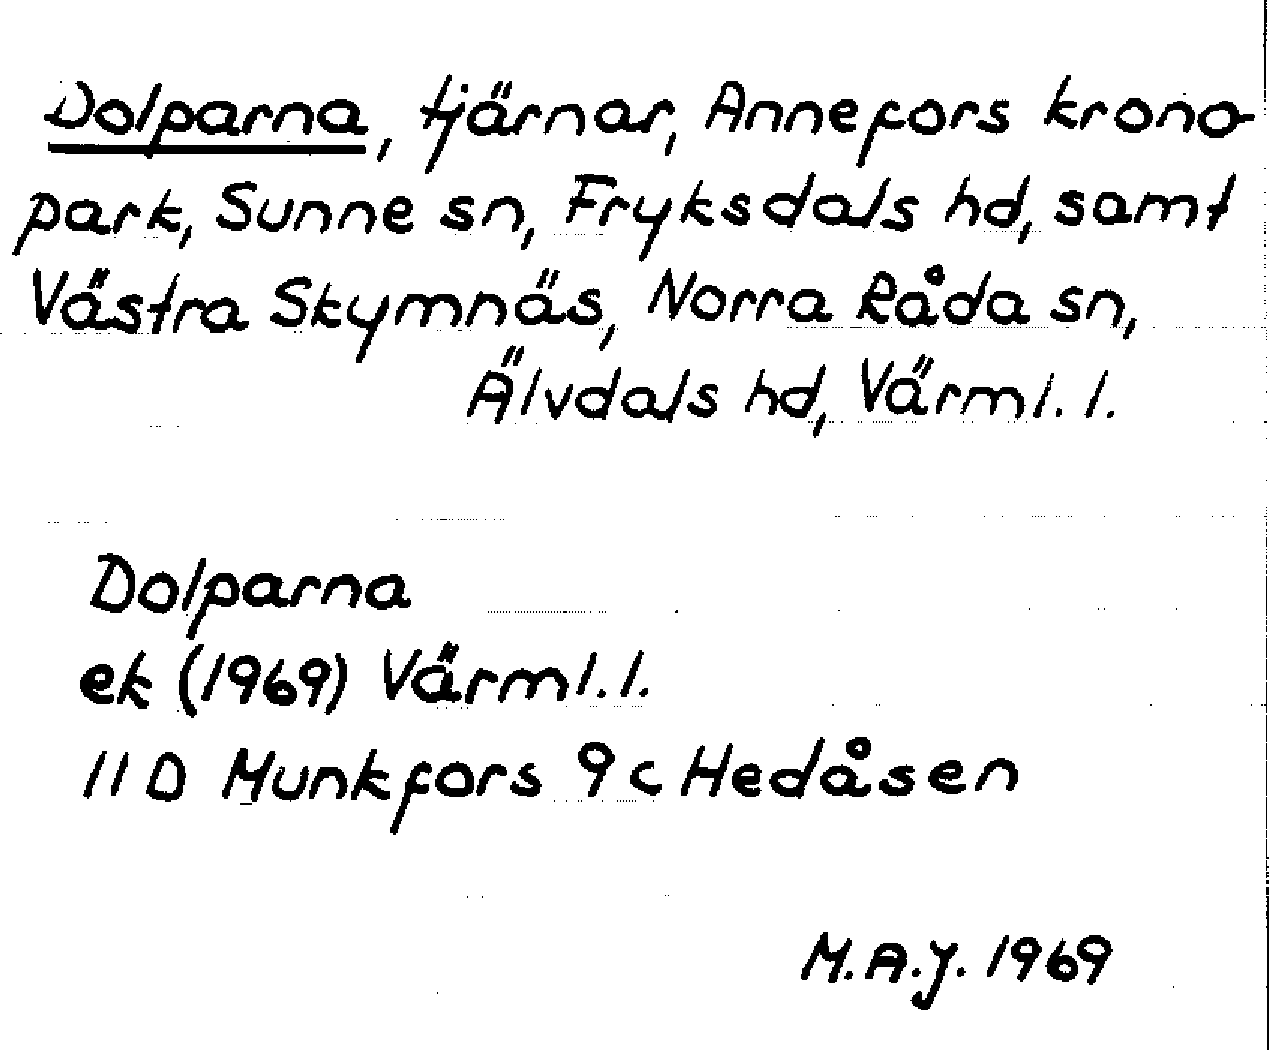 Dolparna, tjärnar, Annefors krono-
park, Sunne sn, Fryksdals hd, samt
Västra Skymnäs, Norra Råda sn,
Älvdals hd, Värml. l.
Dolparna
ek (1969) Värml. l.
11 D Munkfors 9 c Hedåsen
M.A.J. 1969